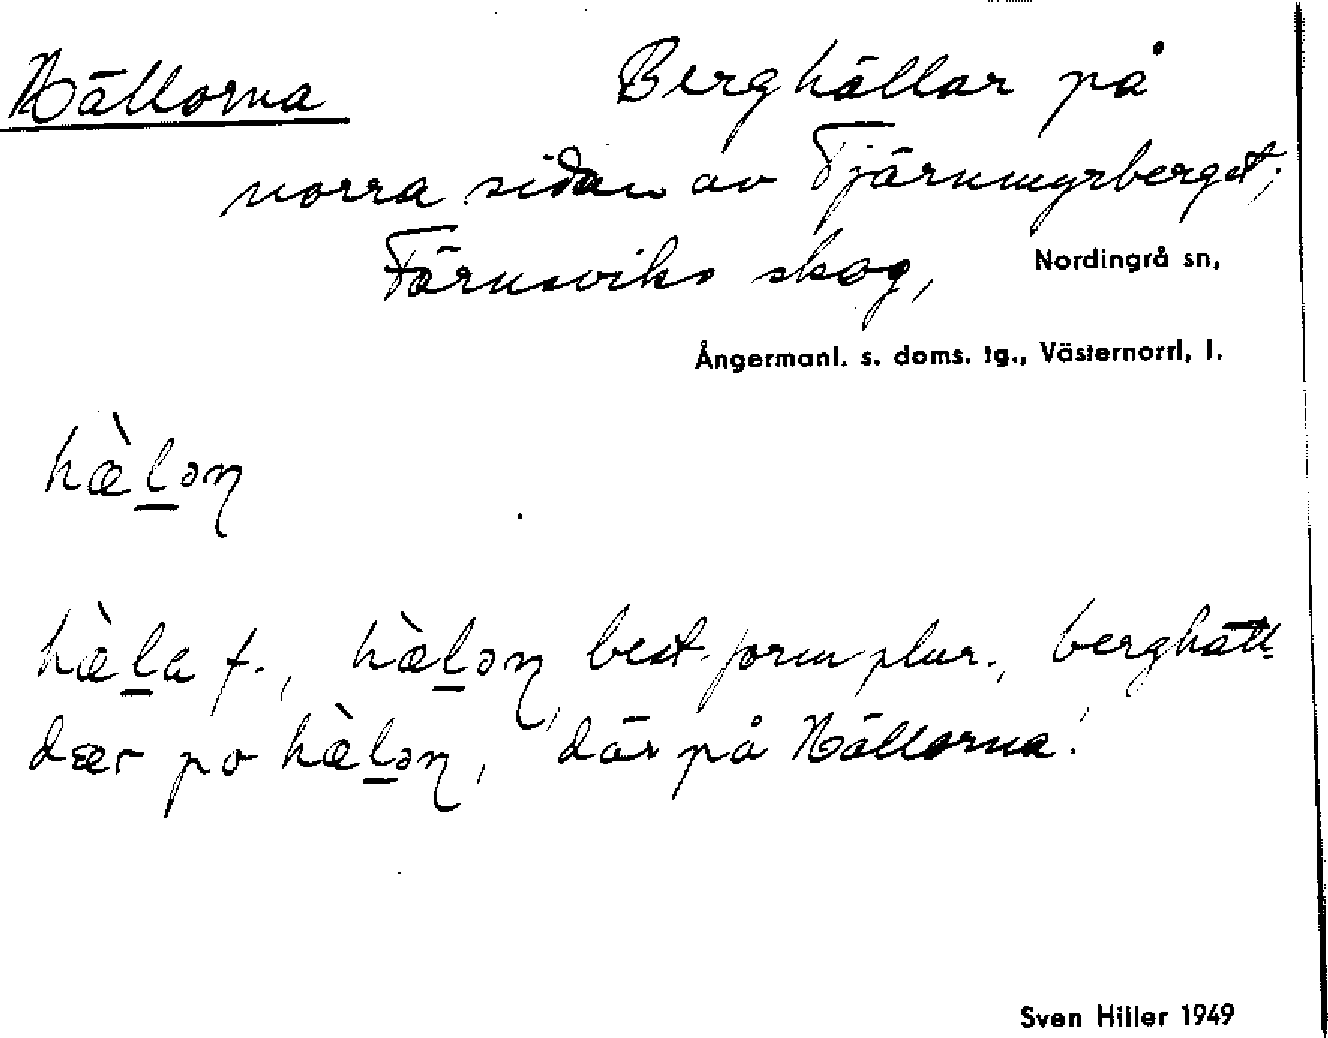 Hällorna Berghällar på
norra sidan av Tjärnmyrberget;
Färnsviks skog, Nordingrå sn,
Ångermanl. s. doms. tg., Västernorrl. l.
hæ̀l̲ɔɳ
hæ̀l̲a f., hæ̀l̲ɔɳ, best. form plur., berghäll.
dær po hæ̀l̲ɔɳ, 'där på Hällorna'.
Sven Hiller 1949